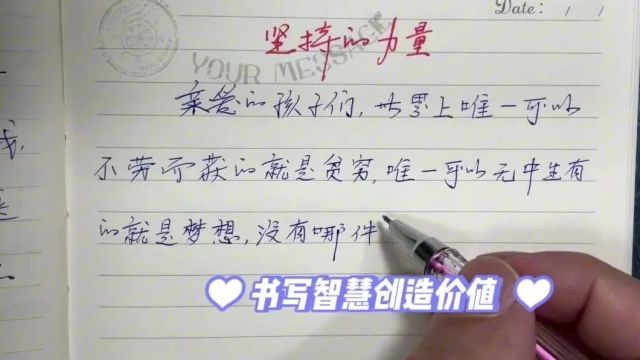 Date: / /
坚持的力量
YOUR MESSAGE
亲爱的孩子们,世界上唯一可以
不劳而获的就是贫穷,唯一可以无中生有
的就是梦想,没有哪件
书写智慧创造价值